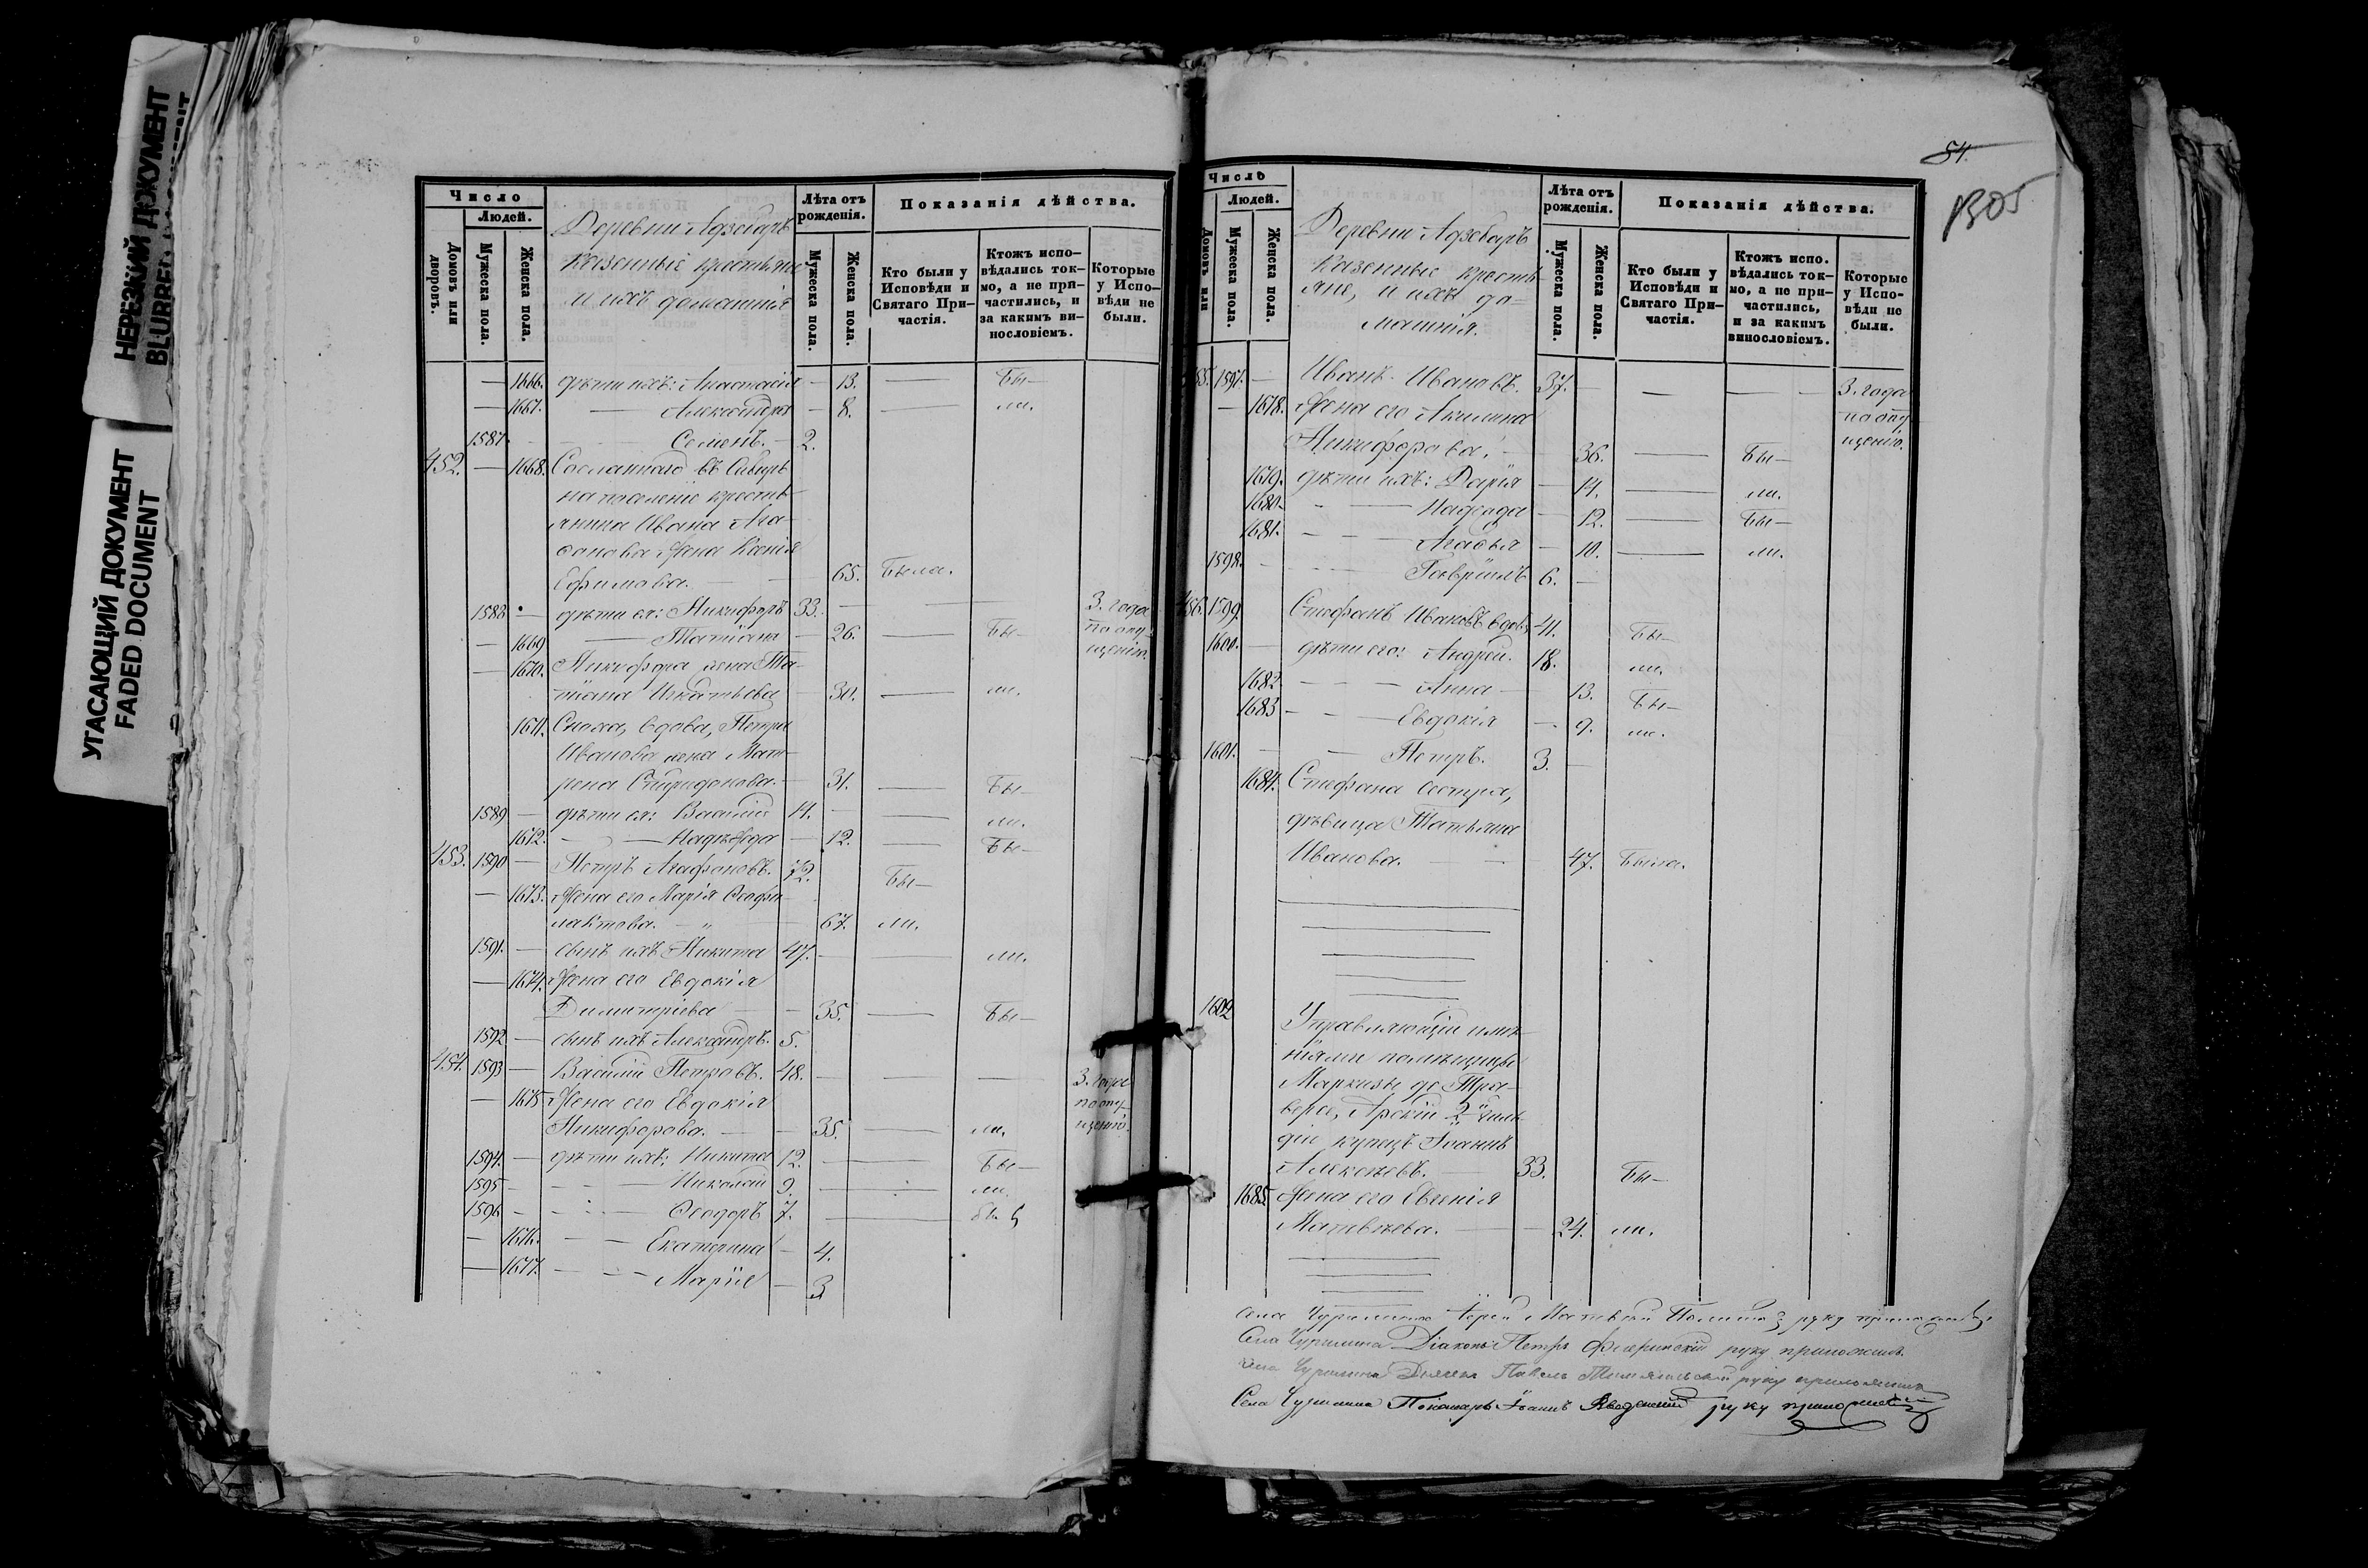 НЕРЕЗКИЙ ДОКУМЕНТ
BLURRED DOCUMENT
УГАСАЮЩИЙ ДОКУМЕНТ
FADED DOCUMENT
Число
Людей.
Домовъ или дворовъ.
Мужеска пола.
Женска пола.
Деревни Адзебаръ
казенные крестьяне
и ихъ домашнія
Лѣта отъ рожденія.
Мужеска пола.
Женска пола.
Показанія дѣйства.
Кто были у Исповѣди и Святаго Причастія.
Ктожъ исповѣдались токмо, а не причастились, и за какимъ винословіемъ.
Которые у Исповѣди не были.
— 1666. дѣти ихъ: Анастасія — 13. — Бы—
— 1667. — Александра — 8. — ли.
1587 — Семенъ. — 2.
452. — 1668. Сосланнаго въ Сибирь
на поселеніе кресть-
янина Ивана Ага-
фонова жена Ксенія
Ефимова. — 65. Была.
1588 — дѣти ея: Никифоръ 33. — 3. года
— 1669 — Татіана — 26. — Бы— по опу-
— 1670. Никифора жена Та- щенію.
тіана Игнатьева 30. — ли.
1671. Сноха, вдова, Петра
Иванова жена Мат-
рена Спиридонова. — 31. — Бы—
1589 — дѣти ея: Василій 14. — ли.
1672. — Надежда — 12. — Бы—
453. 1590 — Петръ Агафоновъ. 72. Бы—
— 1673. Жена его Марія Феофи-
лактова. — 67. ли.
1591. — сынъ ихъ Никита 47. — ли.
— 1674. Жена его Евдокія
Димитріева — 35. — Бы—
1592 — сынъ ихъ Александръ. 5.
454. 1593 — Василій Петровъ. 48. — 3. года
— 1675 Жена его Евдокія по опу-
Никифорова. — 35. — ли. щенію.
1594. — дѣти ихъ: Никита 12. — Бы—
1595 — Николай 9. — ли.
1596 — Ѳеодоръ 7. —
— 1676. — Екатерина — 4.
— 1677. — Марія — 3
54.
1305
Число
Людей.
Домовъ или
Мужеска пола.
Женска пола.
Деревни Адзебаръ
казенные кресть-
яне, и ихъ до-
машнія.
Лѣта отъ рожденія.
Мужеска пола.
Женска пола.
Показанія дѣйства.
Кто были у Исповѣди и Святаго Причастія.
Ктожъ испо. вѣдались токмо, а не причастились, и за какимъ винословіемъ.
Которые у Исповѣди не были.
455. 1597. — Иванъ Ивановъ. 37. — 3. года
— 1678. Жена его Акилина по опу-
Никифорова. — 36. — Бы— щенію.
1679. дѣти ихъ: Дарія — 14. — ли.
1680. — Надежда — 12. — Бы—
1681. — Агафья — 10. — ли.
1598. — Гавріилъ 6. —
456. 1599. Стефанъ Ивановъ вдовъ 41. Бы—
1600. — дѣти его: Андрей. 18. ли.
1682 — Анна — 13. Бы—
1683 — Евдокія — 9. ли.
1601. — Петръ. 3. —
1684. Стефана сестра,
дѣвица Татьяна
Иванова. — 47. Была.
1602 Управляющій имѣ-
ніями помѣщицы
Маркизы де Тра-
верзе, Арскій 2й гиль-
діи купецъ Іоаннъ
Алексѣевъ. — 33. Бы—
1685. Жена его Евгенія
Матвѣева. — 24. ли.
Села Чурилина Іерей Матвей руку приложилъ.
Села Чурилина Діаконъ Петръ руку приложилъ.
Села Чурилина Дьячекъ Павелъ руку приложилъ
Села Чурилина Пономарь Іоаннъ Введенскій руку приложилъ